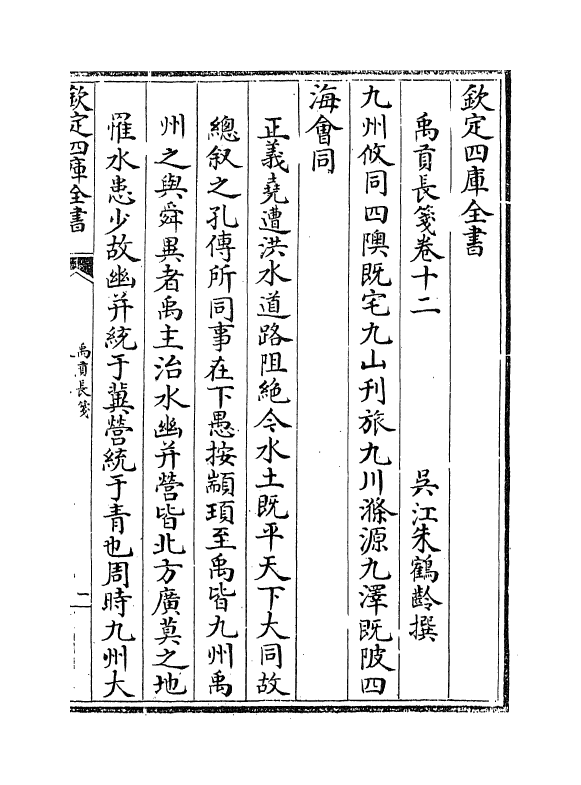 欽定四庫全書
禹貢長箋卷十二
吳江朱鶴齡撰
九州攸同四隩既宅九山刊旅九川滌源九澤既陂四
海會同
正義堯遭洪水道路阻絶今水土既平天下大同故
總叙之孔傳所同事在下愚按顓頊至禹皆九州禹
州之與舜異者禹主治水幽并營皆北方廣莫之地
罹水患少故幽并統于冀營統于青也周時九州大
欽定四庫全書
禹貢長箋